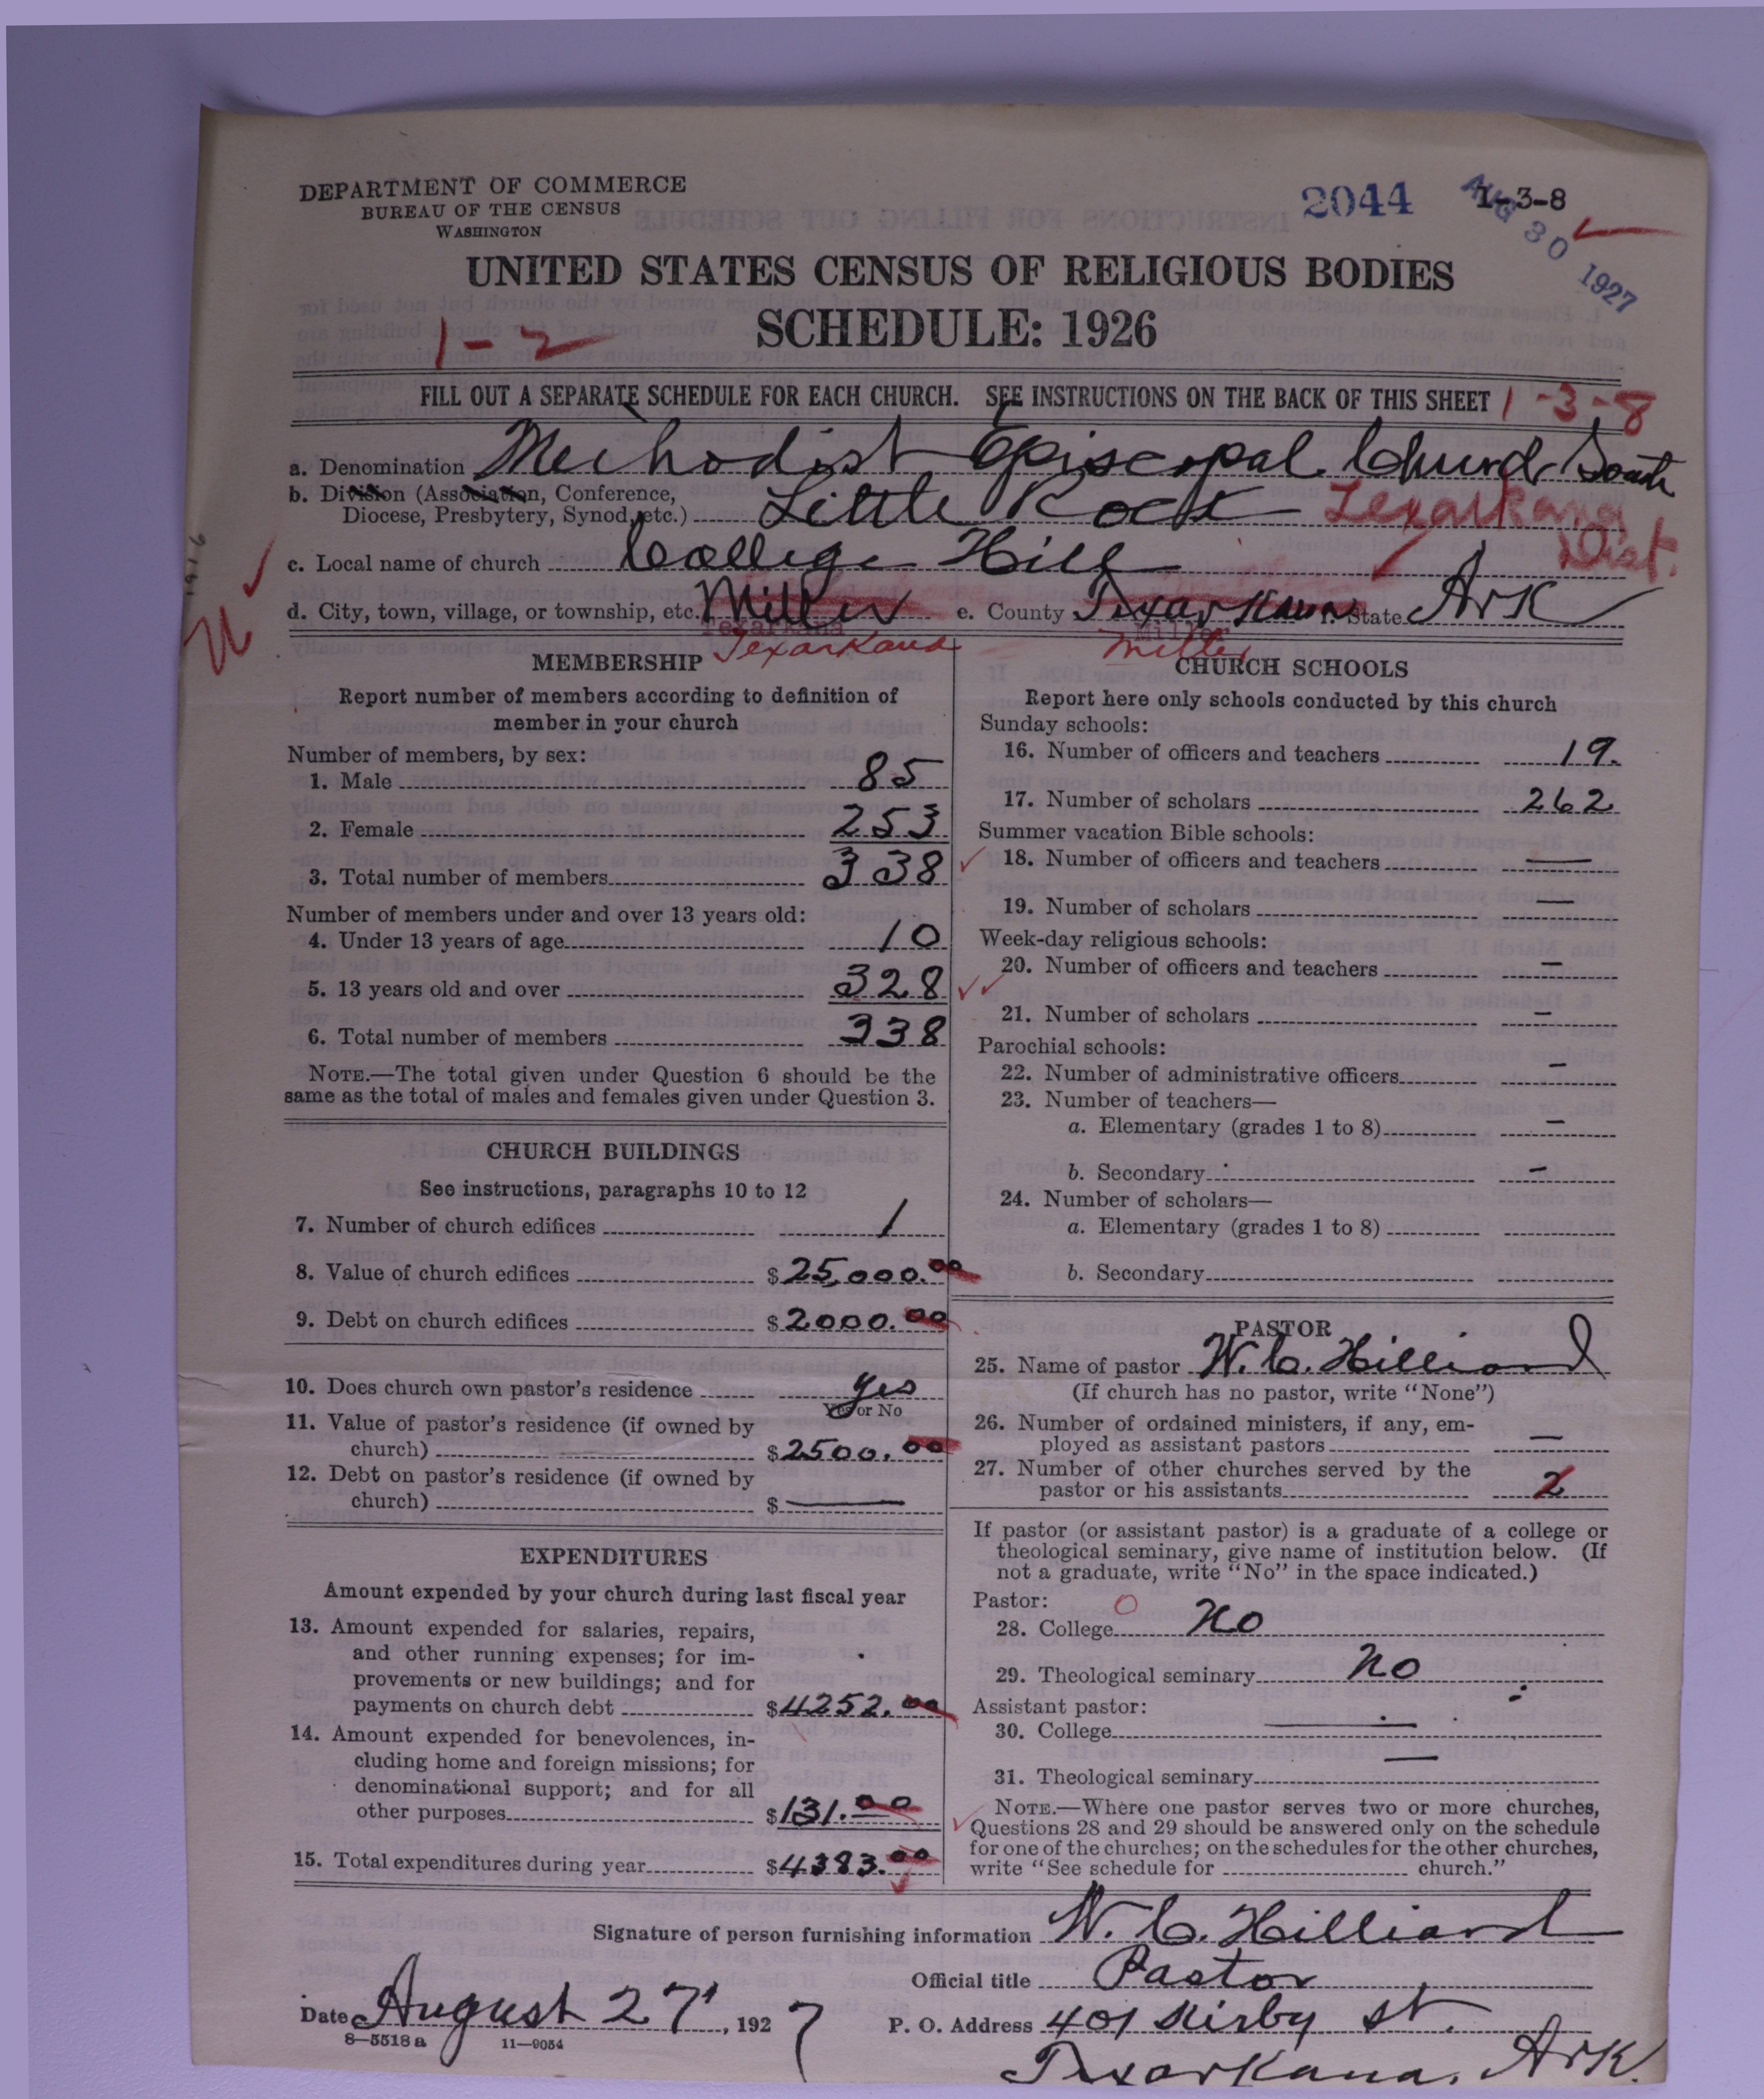 DEPARTMENT OF COMMERCE
BUREAU OF THE CENSUS
WASHINGTON
2044 1-3-8
AUG 30 1927
UNITED STATES CENSUS OF RELIGIOUS BODIES
SCHEDULE: 1926
1-2
FILL OUT A SEPARATE SCHEDULE FOR EACH CHURCH. SEE INSTRUCTIONS ON THE BACK OF THIS SHEET 1-3-8
a. Denomination Methodist Episcopal Church South
b. Division (Association, Conference, Diocese, Presbytery, Synod, etc.) Little Rock Texarkana Dist.
c. Local name of church College Hill
d. City, town, village, or township, etc. Miller e. County Texarkana f. State Ark
Texarkana Miller
Texarkana Miller
MEMBERSHIP
Report number of members according to definition of
member in your church
Number of members, by sex:
1. Male 85
2. Female 253
3. Total number of members 338
Number of members under and over 13 years old:
4. Under 13 years of age 10
5. 13 years old and over 328
6. Total number of members 338
NOTE.—The total given under Question 6 should be the
same as the total of males and females given under Question 3.
CHURCH BUILDINGS
See instructions, paragraphs 10 to 12
7. Number of church edifices 1
8. Value of church edifices $25,000.00
9. Debt on church edifices $2000.00
10. Does church own pastor's residence yes
Yes or No
11. Value of pastor's residence (if owned by
church) $2500.00
12. Debt on pastor's residence (if owned by
church) $ —
EXPENDITURES
Amount expended by your church during last fiscal year
13. Amount expended for salaries, repairs,
and other running expenses; for im-
provements or new buildings; and for
payments on church debt $4252.00
14. Amount expended for benevolences, in-
cluding home and foreign missions; for
denominational support; and for all
other purposes $131.00
15. Total expenditures during year $4383.00
CHURCH SCHOOLS
Report here only schools conducted by this church
Sunday schools:
16. Number of officers and teachers 19.
17. Number of scholars 262
Summer vacation Bible schools:
18. Number of officers and teachers —
19. Number of scholars —
Week-day religious schools:
20. Number of officers and teachers —
21. Number of scholars —
Parochial schools:
22. Number of administrative officers —
23. Number of teachers—
a. Elementary (grades 1 to 8) —
b. Secondary —
24. Number of scholars—
a. Elementary (grades 1 to 8)
b. Secondary
PASTOR
25. Name of pastor W. C. Hilliard
(If church has no pastor, write "None")
26. Number of ordained ministers, if any, em-
ployed as assistant pastors —
27. Number of other churches served by the
pastor or his assistants 2
If pastor (or assistant pastor) is a graduate of a college or
theological seminary, give name of institution below. (If
not a graduate, write "No" in the space indicated.)
Pastor: O
28. College No
29. Theological seminary No
Assistant pastor:
30. College —
31. Theological seminary —
NOTE.—Where one pastor serves two or more churches,
Questions 28 and 29 should be answered only on the schedule
for one of the churches; on the schedules for the other churches,
write "See schedule for church."
Signature of person furnishing information W. C. Hilliard
Official title Pastor
Date August 27, 1927
P. O. Address 401 Kirby St.
Texarkana, Ark.
8—5518 a 11—9054